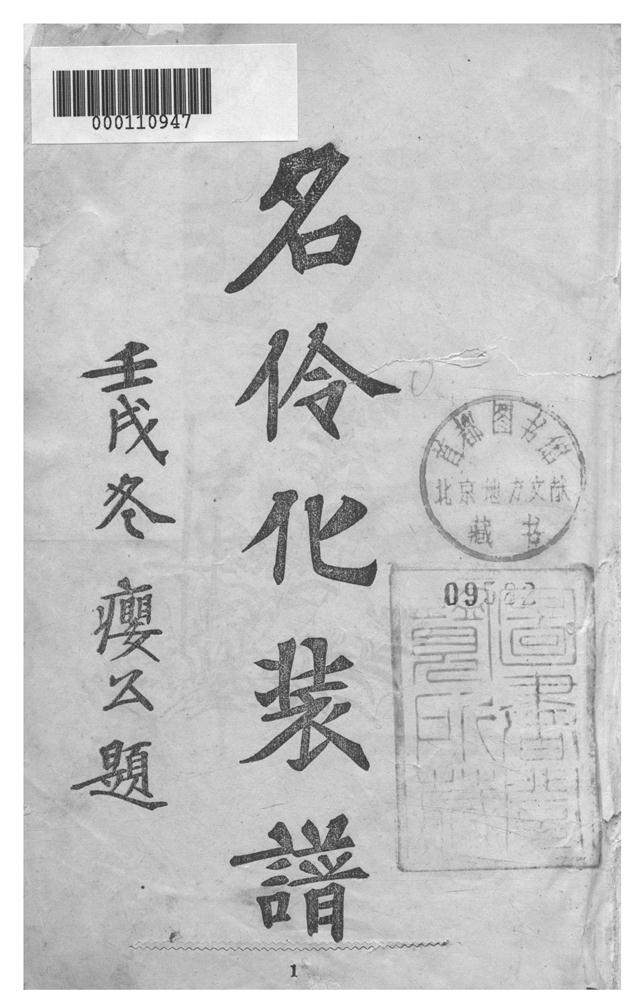 000110947
名伶化装譜
壬戌冬 癭公題
首都图书馆
北京地方文献
藏书
1